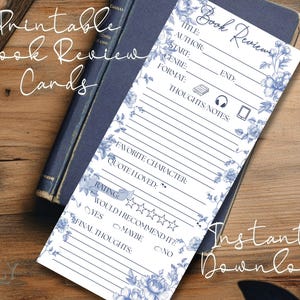 Printable
Book Review
Cards
Book Review
TITLE:
AUTHOR:
START: END:
GENRE:
FORMAT:
THOUGHTS/NOTES:
FAVORITE CHARACTER:
QUOTE I LOVED:
RATING:
WOULD I RECOMMEND IT?
YES MAYBE NO
FINAL THOUGHTS:
Instant
Download